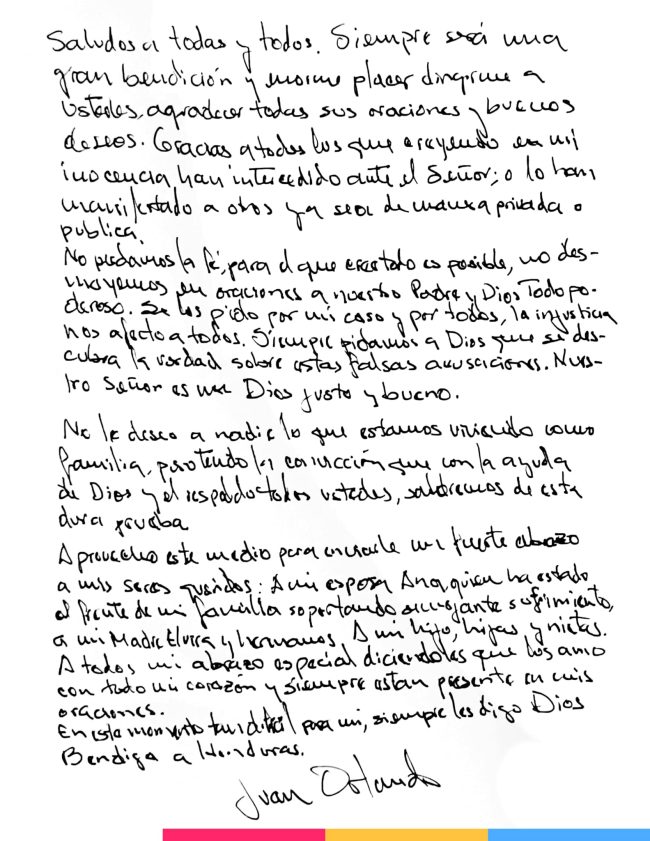 Saludos a todas y todos. Siempre será una
gran bendición y enorme placer dirigirme a
Ustedes, agradecer todas sus oraciones y buenos
deseos. Gracias a todos los que creyendo en mi
inocencia han intercedido ante el Señor; o lo han
manifestado a otros ya sea de manera privada o
publica.
No perdamos la fé, para el que cree todo es posible, no des-
mayemos en oraciones a nuestro Padre y Dios Todo po-
deroso. Se los pido por mi caso y por todos, la injusticia
nos afecta a todos. Siempre pidamos a Dios que se des-
cubra la verdad sobre estas falsas acusaciones. Nues-
tro Señor es un Dios justo y bueno.
No le deseo a nadie lo que estamos viviendo como
familia, pero tengo la convicción que con la ayuda
de Dios y el respaldo todos ustedes, saldremos de esta
dura prueba
Aprovecho este medio para enviarle un fuerte abrazo
a mis seres queridos: A mi esposa Ana quien ha estado
al frente de mi familia soportando semejante sufrimiento,
a mi Madre Elvira y hermanos. A mi hijo, hijas y nietas.
A todos mi abrazo especial diciendoles que los amo
con todo mi corazón y siempre estan presente en mis
oraciones.
En este momento tan dificil para mi, siempre les digo Dios
Bendiga a Honduras.
Juan Orlando